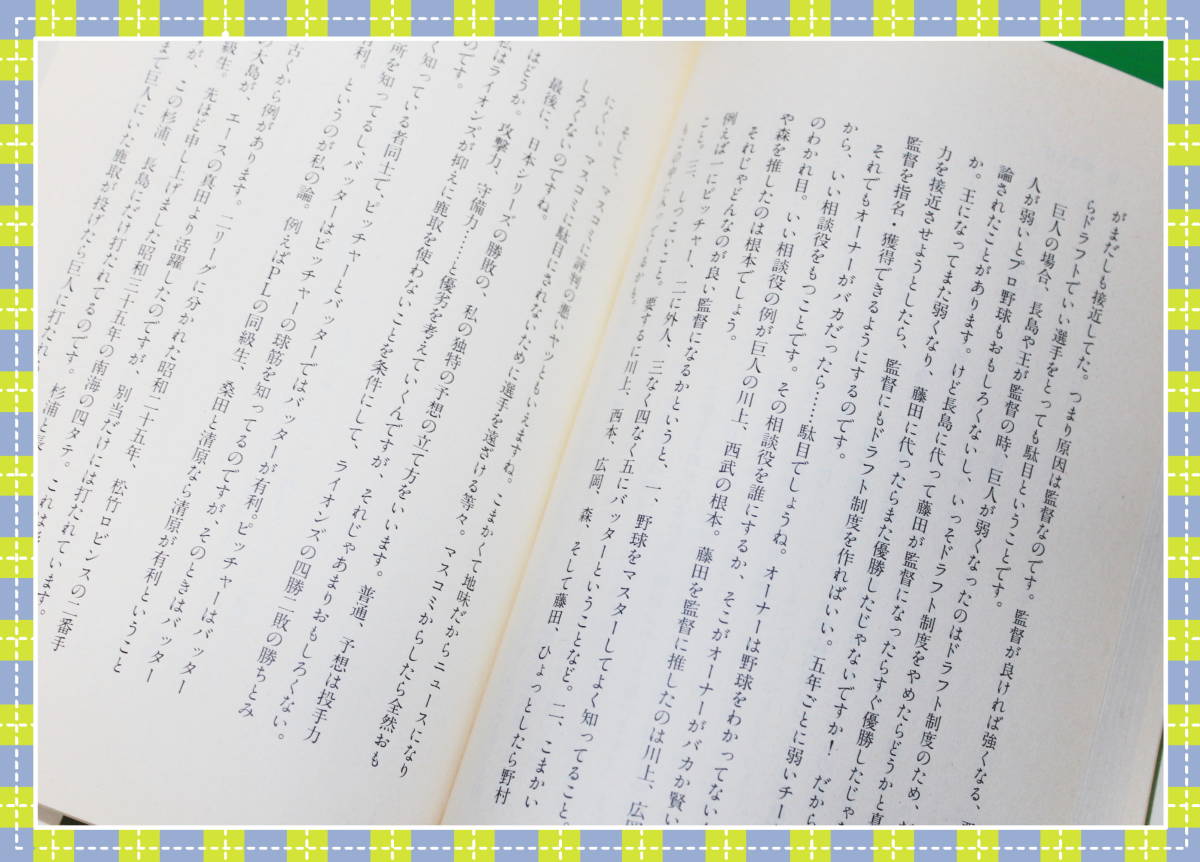 がまだしも接近してた。つまり原因は監督なのです。監督が良ければ強くなる、
らドラフトでいい選手をとっても駄目ということです。
巨人の場合、長島や王が監督の時、巨人が弱くなった
人が弱いとプロ野球もおもしろくないし、いっそドラフト制度をやめたらどうかと真
論されたことがあります。けど長島に代って藤田が監督になったらすぐ優勝したじゃな
か。王になってまた弱くなり、藤田に代ったらまた優勝したじゃないですか！だから
力を接近させようとしたら、監督にもドラフト制度を作ればいい。五年ごとに弱いチー
監督を指名・獲得できるようにするのです。
それでもオーナーがバカだったら……駄目でしょうね。オーナーは野球をわかってない
から、いい相談役をもつことです。その相談役を誰にするか、そこがオーナーがバカか賢い
のわかれ目。いい相談役の例が巨人の川上、西武の根本。藤田を監督に推したのは川上、広岡
や森を推したのは根本でしょう。
それじゃどんなのが良い監督になるかというと、一、野球をマスターしてよく知ってること。
例えば一にピッチャー、二に外人、三なく四なく五にバッターということなど。二、こまかい
こと。三、しつこいこと。要するに川上、西本、広岡、森、そして藤田、ひょっとしたら野村
そして、マスコミに評判の悪いヤツともいえますね。こまかくて地味だからニュースになり
にくい。マスコミに駄目にされないために選手を遠ざける等々。マスコミからしたら全然おも
しろくないのですね。
最後に、日本シリーズの勝敗の、私の独特の予想の立て方をいいます。普通、予想は投手力
はどうか。攻撃力、守備力……と優劣を考えていくんですが、それじゃあまりおもしろくない。
私はライオンズが抑えに鹿取を使わないことを条件にして、ライオンズの四勝二敗の勝ちとみ
のです。
く知っている者同士で、ピッチャーとバッターではバッターが有利。ピッチャーはバッター
所を知ってるし、バッターはピッチャーの球筋を知ってるのですが、そのときはバッター
有利。というのが私の論。例えばPLの同級生、桑田と清原なら清原が有利ということ
古くから例があります。二リーグに分かれた昭和二十五年、松竹ロビンスの二番手
の大島が、エースの真田より活躍したのですが、別当だけには打たれています。
級生。先ほど申し上げました昭和三十五年の南海の四タテ。これは
が、この杉浦、長島にだけ打たれてるのです。杉浦と長
まで巨人にいた鹿取が投げたら巨人に打たれ、